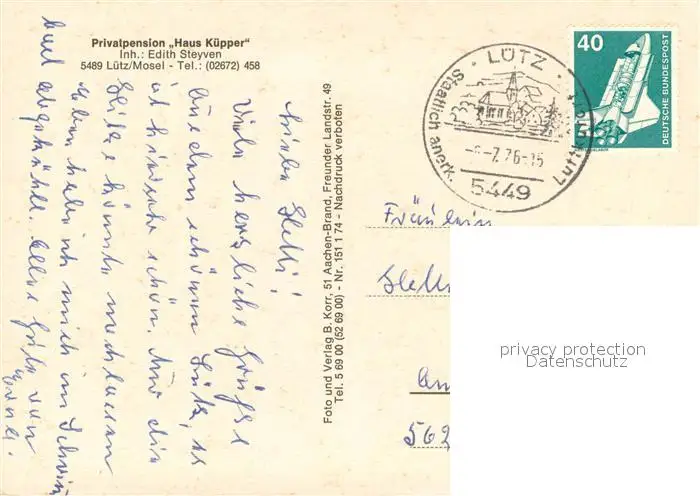 Privatpension „Haus Küpper"
Inh.: Edith Steyven
5489 Lütz/Mosel - Tel.: (02672) 458
Viele herzliche Grüße
aus dem schönen Lütz, es
ist hier sehr schön. Nur die
Hitze könnte nachlassen
eben habe ich mich im Schwimm
bad abgekühlt. Alles Gute von
Foto und Verlag B. Korr, 51 Aachen-Brand, Freunder Landstr. 49
Tel. 5 69 00 (62 69 00) - Nr. 151 1 74 - Nachdruck verboten
LÜTZ
Staatlich anerk. Luftk
7.76-15
5449
40
DEUTSCHE BUNDESPOST
Fräulein
562
privacy protection
Datenschutz